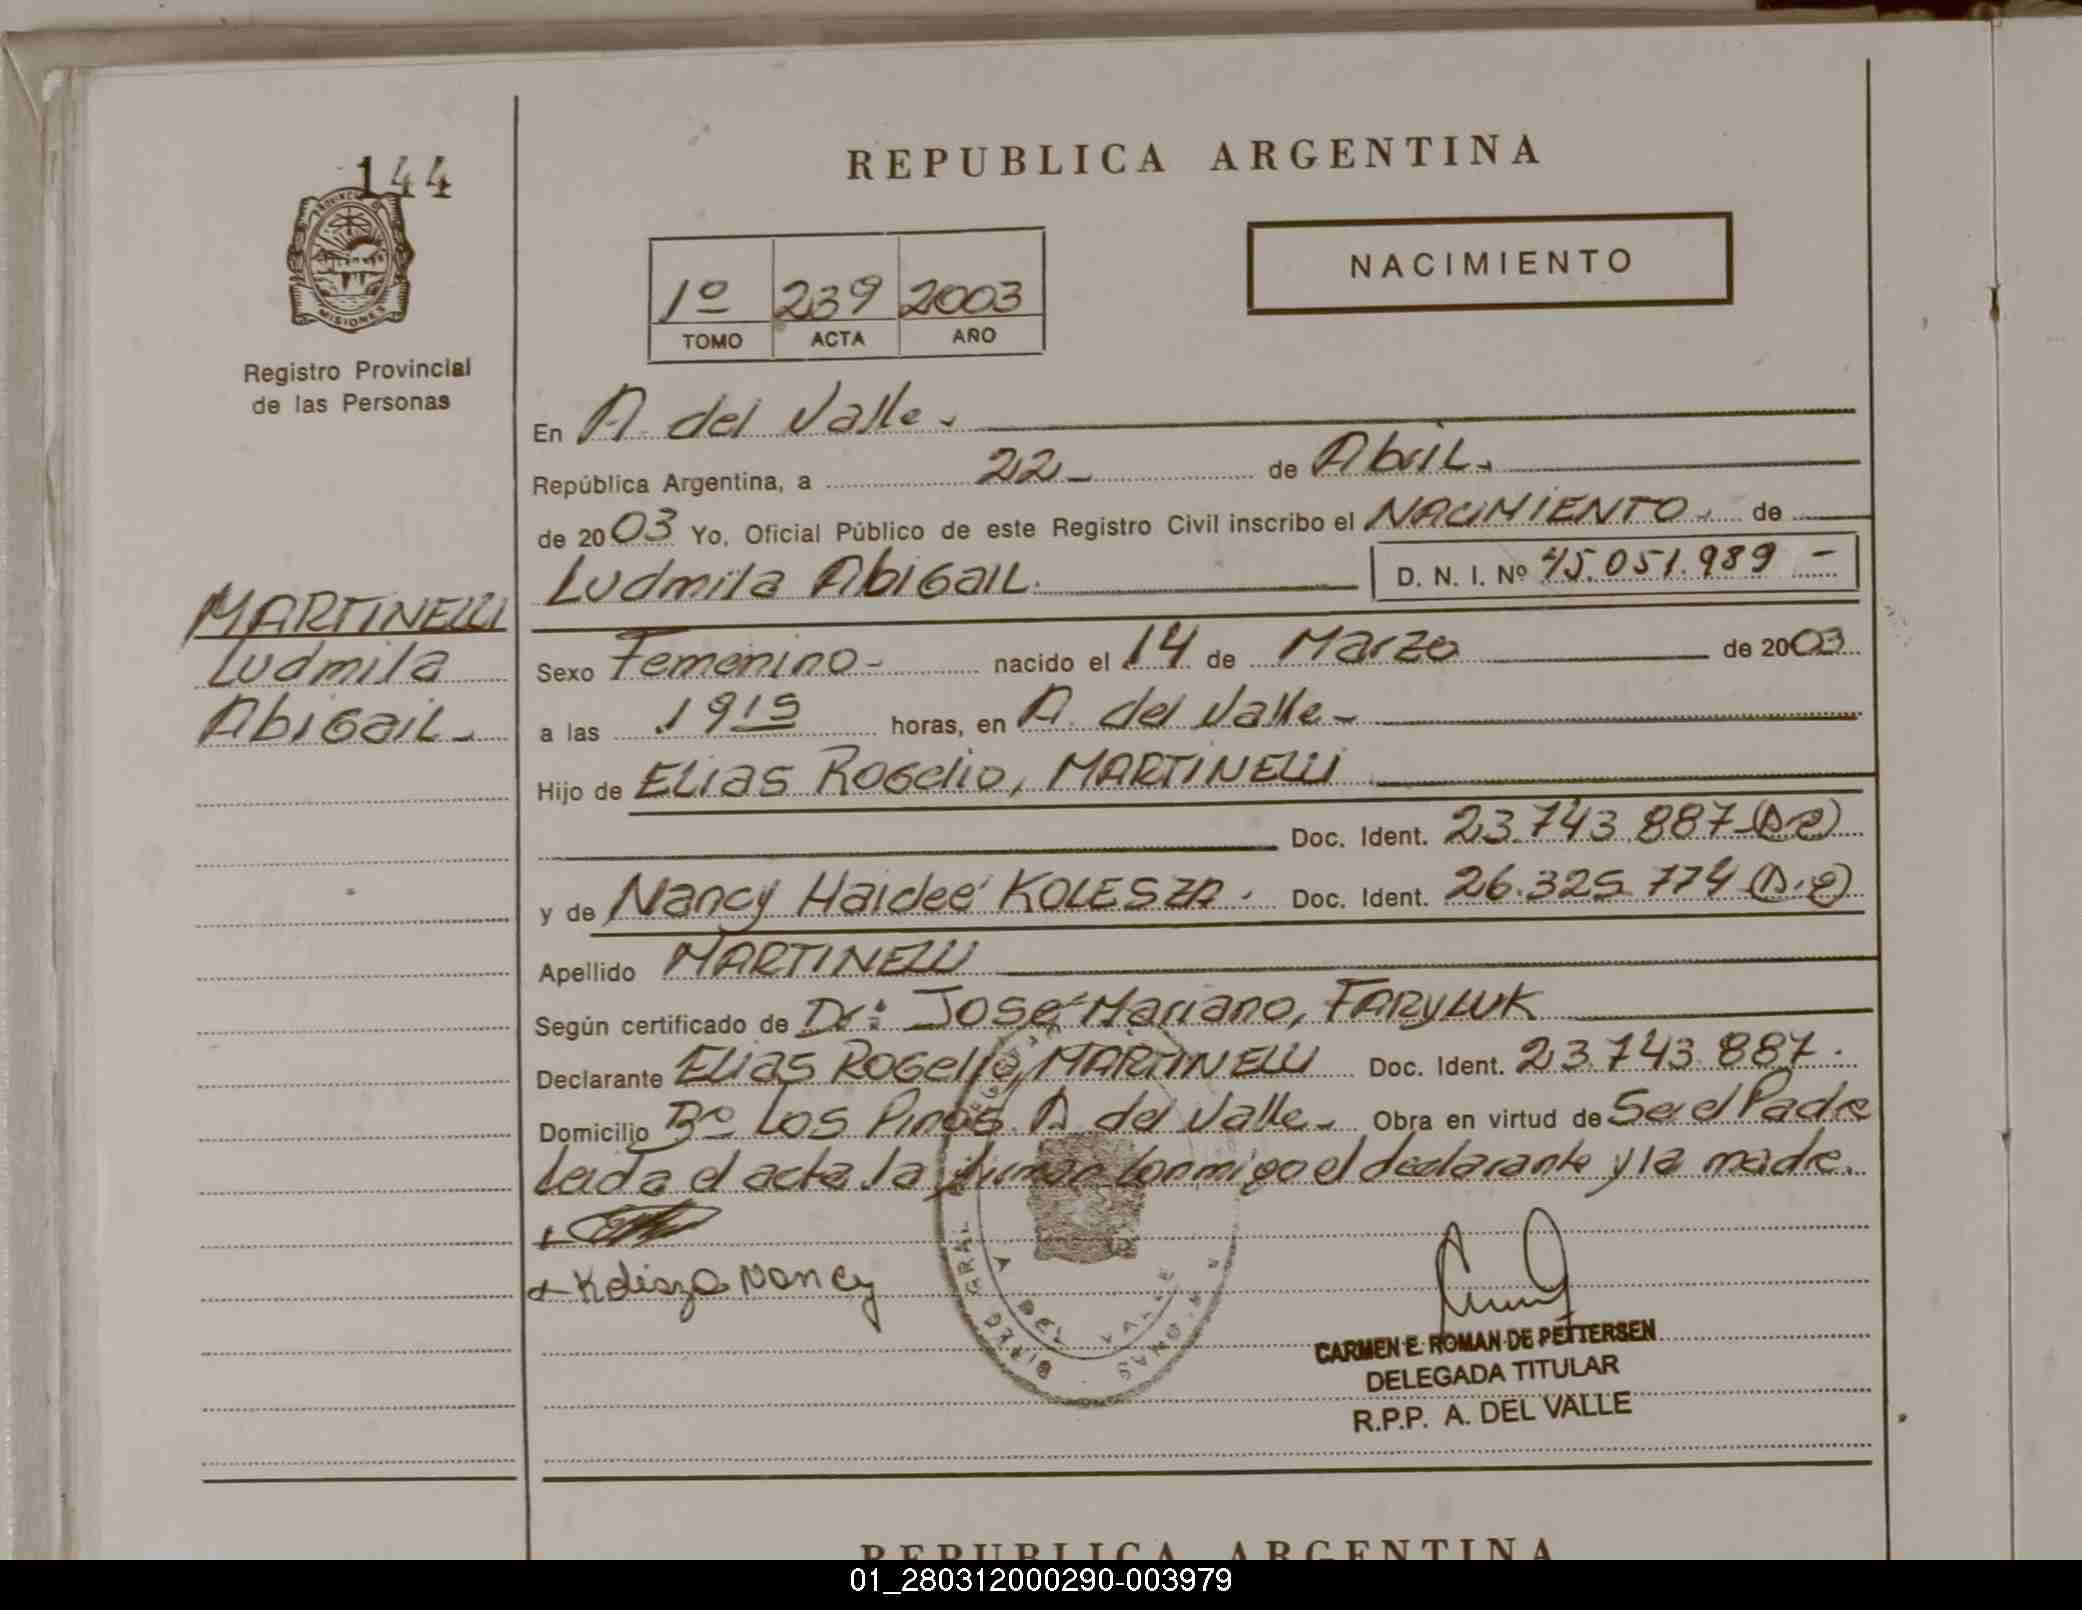 144
PROVINCIA DE
MISIONES
Registro Provincial
de las Personas
MARTINELLI
Ludmila
Abigail.
REPUBLICA ARGENTINA
1º 239 2003
TOMO ACTA AÑO
NACIMIENTO
En A. del Valle.
República Argentina, a 22 de Abril.
de 2003 Yo, Oficial Público de este Registro Civil inscribo el NACIMIENTO de
Ludmila Abigail. D. N. I. Nº 45.051.989 -
Sexo Femenino - nacido el 14 de Marzo de 2003
a las 1915 horas, en A. del Valle -
Hijo de Elias Rogelio, MARTINELLI
Doc. Ident. 23.743.887
y de Nancy Haideé KOLESZA. Doc. Ident. 26.325.774
Apellido MARTINELLI
Según certificado de Dr: José Mariano, FARYLUK
Declarante Elias Rogelio, MARTINELLI Doc. Ident. 23.743.887.
Domicilio Bº Los Pinos. A. del Valle - Obra en virtud de Ser el Padre
Leida el acta la firman conmigo el declarante y la madre.
Kolesza Nancy
A DEL VALLE
CARMEN E. ROMAN DE PETTERSEN
DELEGADA TITULAR
R.P.P. A. DEL VALLE
REPUBLICA ARGENTINA
01_280312000290-003979